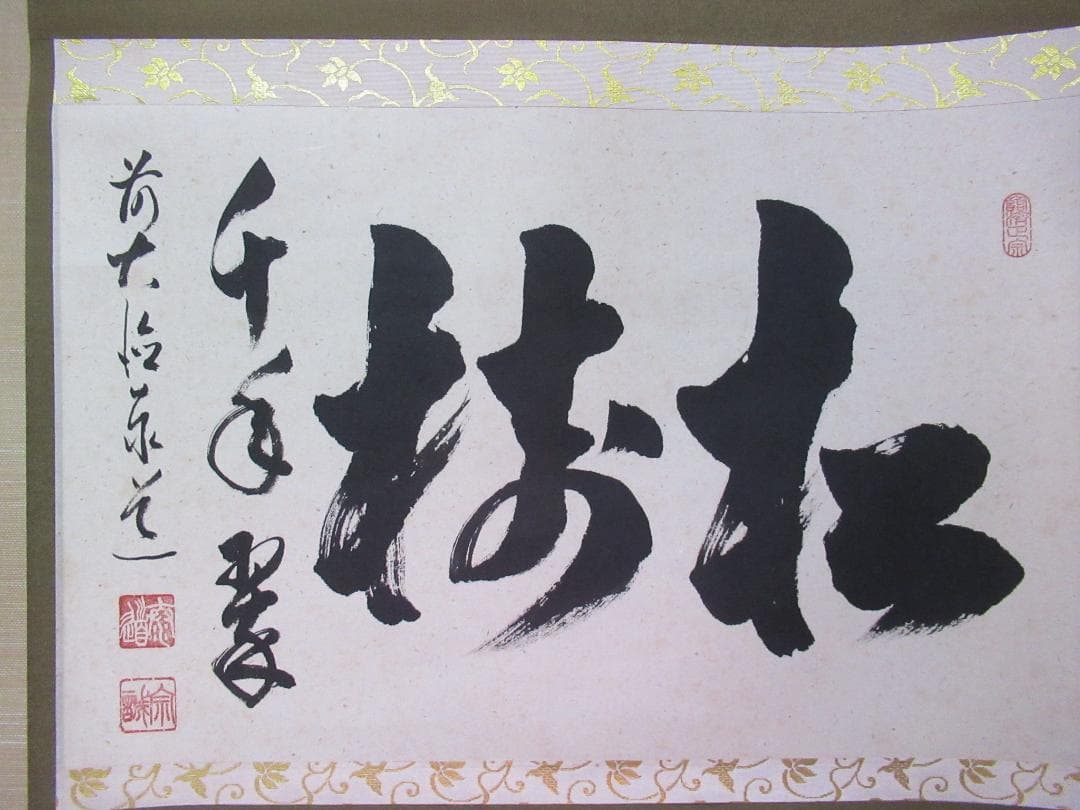 松樹
千年翠
前大徳泰道